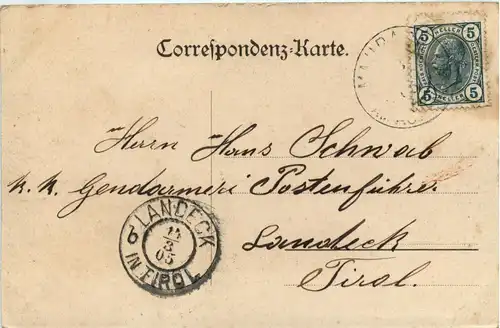 Correspondenz-Karte.
5 HELLER 5
5 HELLER 5
Herrn Hans Schwab
k. k. Gendarmeri Postenführer
Landeck
Tirol.
LANDECK
6
14
3
05
IN TIROL